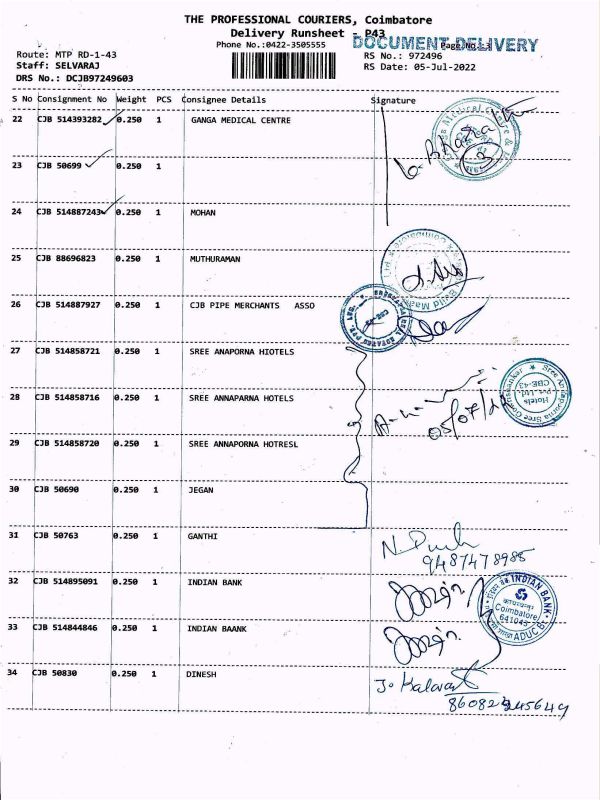 THE PROFESSIONAL COURIERS, Coimbatore
Delivery Runsheet - P43
DOCUMENT DELIVERY
Phone No.:0422-3505555
Page No.:3
Route: MTP RD-1-43
RS No.: 972496
Staff: SELVARAJ
RS Date: 05-Jul-2022
DRS No.: DCJB97249603
S No Consignment No Weight PCS Consignee Details Signature
22 CJB 514393282 0.250 1 GANGA MEDICAL CENTRE
23 CJB 50699 0.250 1
24 CJB 514887243 0.250 1 MOHAN
25 CJB 88696823 0.250 1 MUTHURAMAN
26 CJB 514887927 0.250 1 CJB PIPE MERCHANTS ASSO
27 CJB 514858721 0.250 1 SREE ANAPORNA HIOTELS
28 CJB 514858716 0.250 1 SREE ANNAPORNA HOTELS
05/07/22
Hotels
Pvt Ltd.
CBE-43
29 CJB 514858720 0.250 1 SREE ANNAPORNA HOTRESL
30 CJB 50690 0.250 1 JEGAN
31 CJB 50763 0.250 1 GANTHI
9487478985
32 CJB 514895091 0.250 1 INDIAN BANK
INDIAN BANK
Coimbatore
641043
33 CJB 514844846 0.250 1 INDIAN BAANK
34 CJB 50830 0.250 1 DINESH